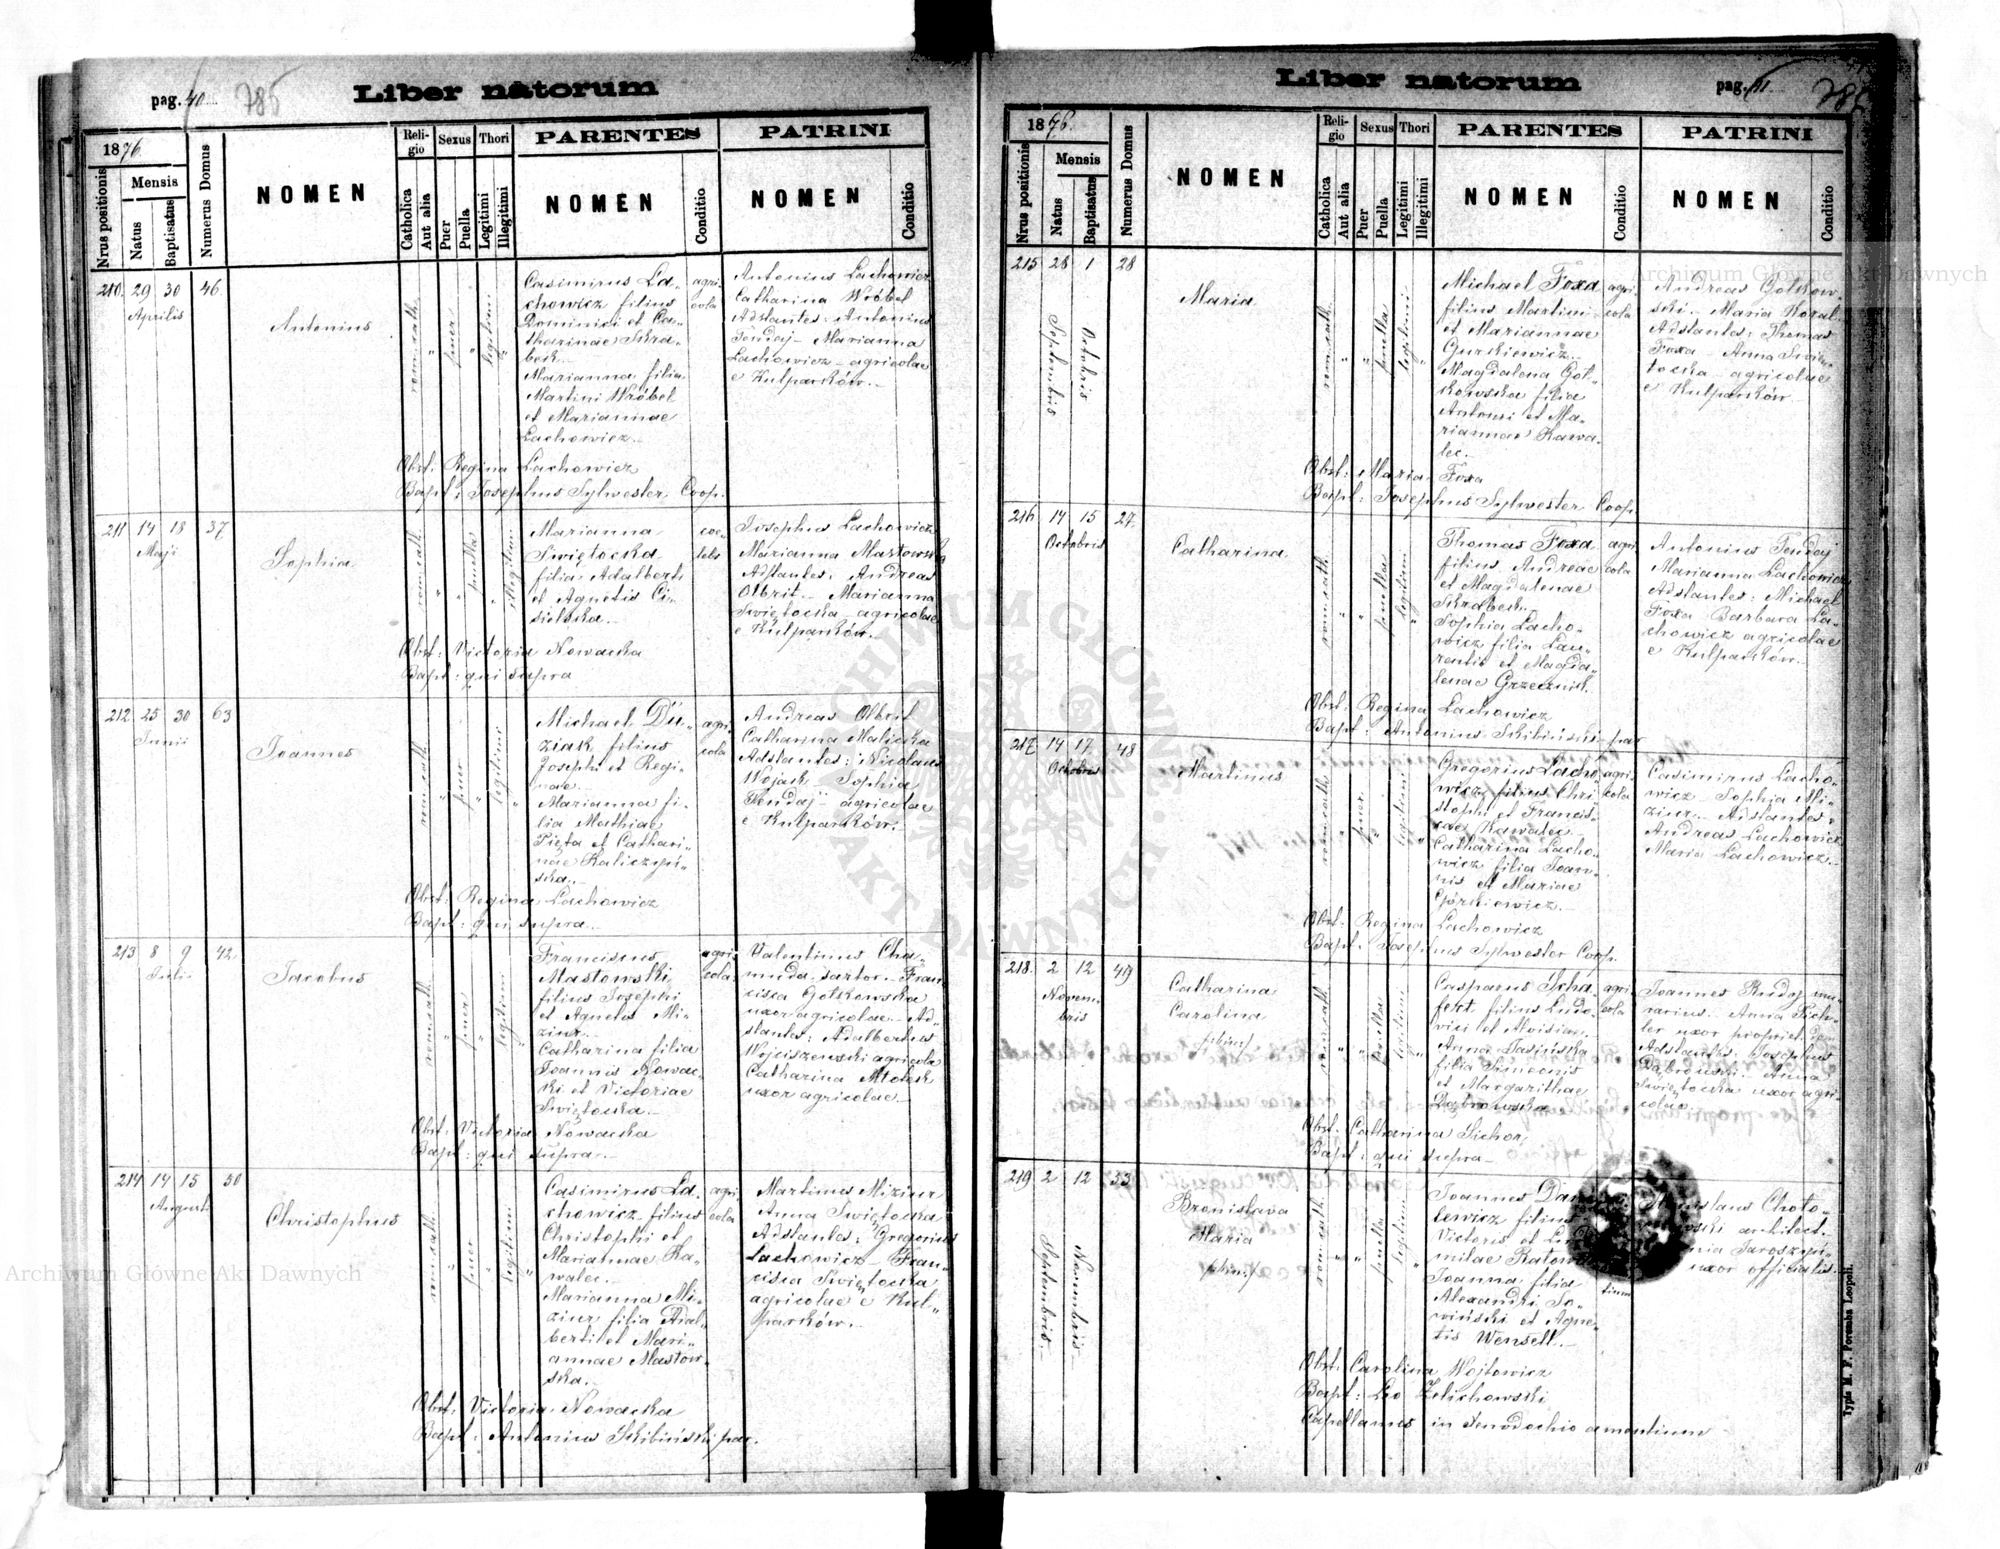 pag. 40
785
Liber natorum
1876
Religio
Sexus
Thori
PARENTES
PATRINI
Nrus positionis
Mensis
Natus
Baptisatus
Numerus Domus
NOMEN
Catholica
Aut alia
Puer
Puella
Legitimi
Illegitimi
NOMEN
Conditio
NOMEN
Conditio
210 29 30 46
Aprilis
Antonius
rom. cath.
puer
legitimi
Casimirus La-
chowicz filius
Dominici et Ca-
tharinae Skra-
bek.-
Marianna filia
Martini Wróbel
et Mariannae
Lachowicz.-
agri-
cola
Antonius Lachowicz
Catharina Wróbel
Adstantes: Antonius
Tendaj - Marianna
Lachowicz - agricolae
e Kulparków.-
Obst: Regina Lachowicz
Bapt: Josephus Sylwester Coop.
211 14 18 37
Maji
Sophia
rom. cath.
puella
illegitim
Marianna
Swiętocka
filia Adalberti
et Agnetis Ci-
sielska.-
coe-
lebs
Josephus Lachowicz
Marianna Mastowska
Adstantes: Andreas
Olbrit - Marianna
Swiętocka - agricolae
e Kulparków.-
Obst: Victoria Nowacka
Bapt: qui supra
212 25 30 63
Junii
Joannes
rom. cath.
puer
legitimi
Michael Du-
ziak filius
Josephi et Regi-
nae.-
Marianna fi-
lia Mathiae
Pięta et Cathari-
nae Kaliczyńs-
ska.-
agri-
cola
Andreas Olbrit
Catharina Malicka
Adstantes: Nicolaus
Wojack - Sophia
Tendaj - agricolae
e Kulparków.-
Obst: Regina Lachowicz
Bapt: qui supra.-
213 8 9 42
Julii
Jacobus
rom. cath.
puer
legitimi
Franciscus
Mastowski
filius Josephi
et Agnetis Mi-
ziur.-
Catharina filia
Joannis Nowac-
ki et Victoriae
Swiętocka.-
agri-
cola
Valentinus Cha-
muda sartor - Fran-
cisca Gotkowska
uxor agricolae - Ad-
stantes: Adalbertus
Wojciszewski agricola
Catharina Mtotek
uxor agricolae.-
Obst: Victoria Nowacka
Bapt: qui supra.-
214 14 15 50
Augusti
Christophus
rom. cath.
puer
legitimi
Casimirus La-
chowicz filius
Christophi et
Mariannae Ka-
walec.-
Marianna Mi-
ziur filia Adal-
berti et Mari-
annae Mastow-
ska.-
agri-
cola
Martinus Miziur
Anna Swiętocka
Adstantes: Gregorius
Lachowicz - Fran-
cisca Swiętocka
agricolae e Kul-
parków.-
Obst: Victoria Nowacka
Bapt: Antonius Skibiński par.
Liber natorum
pag. 41
1876
Religio
Sexus
Thori
PARENTES
PATRINI
Nrus positionis
Mensis
Natus
Baptisatus
Numerus Domus
NOMEN
Catholica
Aut alia
Puer
Puella
Legitimi
Illegitimi
NOMEN
Conditio
NOMEN
Conditio
215 28 1 28
Septembris
Octobris
Maria
rom. cath.
puella
legitimi
Michael Foxa
filius Martini
et Mariannae
Gurkiewicz.-
Magdalena Got-
kowska filia
Antonii et Ma-
riannae Kawa-
lec.-
agri-
cola
Andreas Gotkow-
ski - Maria
Adstantes: Thomas
Foxa - Anna Swię-
tocka - agricolae
e Kulparków.-
Obst: Maria Foxa
Bapt: Josephus Sylwester Coop.
216 14 15 27
Octobris
Catharina
rom. cath.
puella
legitim
Thomas Foxa
filius Andreae
et Magdalenae
Skrabek.-
Sophia Lacho-
wicz filia Lau-
rentii et Magda-
lenae Grzecznik.
agri-
cola
Antonius Tendaj
Marianna Lachowicz
Adstantes: Michael
Foxa Barbara La-
chowicz agricolae
e Kulparków.-
Obst: Regina Lachowicz
Bapt: Antonius Skibiński par.
217 14 17 48
Octobris
Martinus
rom. cath.
puer
legitimi
Gregorius Lacho-
wicz filius Chri-
stophi et Francis-
cae Kawalec.-
Catharina Lacho-
wicz filia Joan-
nis et Mariae
Górkiewicz.-
agri-
cola
Casimirus Lacho-
wicz - Sophia Mi-
ziur - Adstantes:
Andreas Lachowicz
Maria Lachowicz.-
Obst: Regina Lachowicz
Bapt: Josephus Sylwester Coop.
218. 2 12 49
Novem-
bris
Catharina
Carolina
/bin:/
rom. cath.
puella
legitimi
Casparus Scha-
fert filius Ludo-
vici et Aloisiae
Anna Jasińska
filia Simeonis
et Margarithae
Dąbrowska
agri-
cola
Joannes Rudy mu-
rarius - Anna Pich-
ler uxor propriet.
Adstantes: Josephus
Dąbrowski Anna
Swiętocka uxor agri-
colae.
Obst: Catharina Sichor
Bapt: qui supra.-
219 2 12 53
Septembris.-
Novembris.-
Bronislava
Maria
/bin:/
rom. cath.
puella
legitimi
Joannes
lewicz filius
Victoris et
milae
Joanna filia
Alexandri So-
wiński et Agne-
tis Wensell.-
Choto-
ski architect.
Jaroszyń-
uxor officialis.
Obst: Carolina Wojtowicz
Bapt: Leo Zelichowski
Capellanus in Xenodochio amentium
Typis M. F. Poremba Leopoli.
ARCHIWUM GŁÓWNE AKT DAWNYCH
Archiwum Główne Akt Dawnych
Archiwum Główne Akt Dawnych